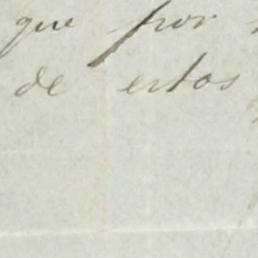 que por
de estos